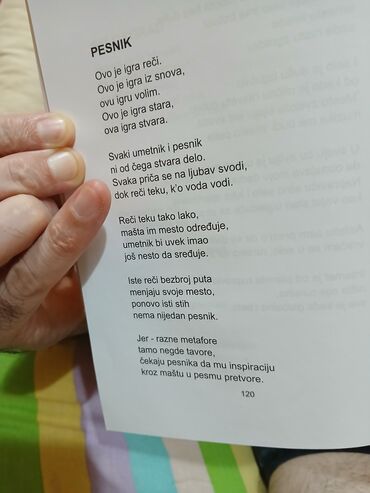 PESNIK
Ovo je igra reči.
Ovo je igra iz snova,
ovu igru volim.
Ovo je igra stara,
ova igra stvara.
Svaki umetnik i pesnik
ni od čega stvara delo.
Svaka priča se na ljubav svodi,
dok reči teku, k'o voda vodi.
Reči teku tako lako,
mašta im mesto određuje,
umetnik bi uvek imao
još nesto da sređuje.
Iste reči bezbroj puta
menjaju svoje mesto,
ponovo isti stih
nema nijedan pesnik.
Jer - razne metafore
tamo negde tavore,
čekaju pesnika da mu inspiraciju
kroz maštu u pesmu pretvore.
120